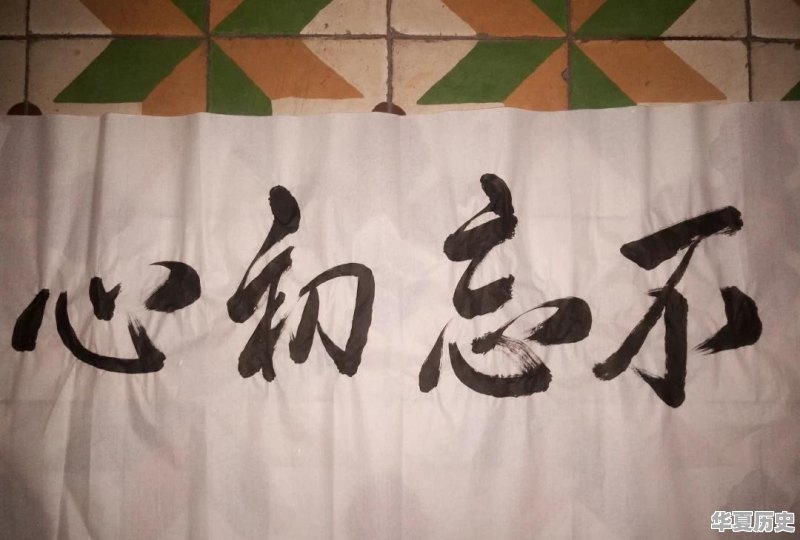 不忘初心
华夏历史